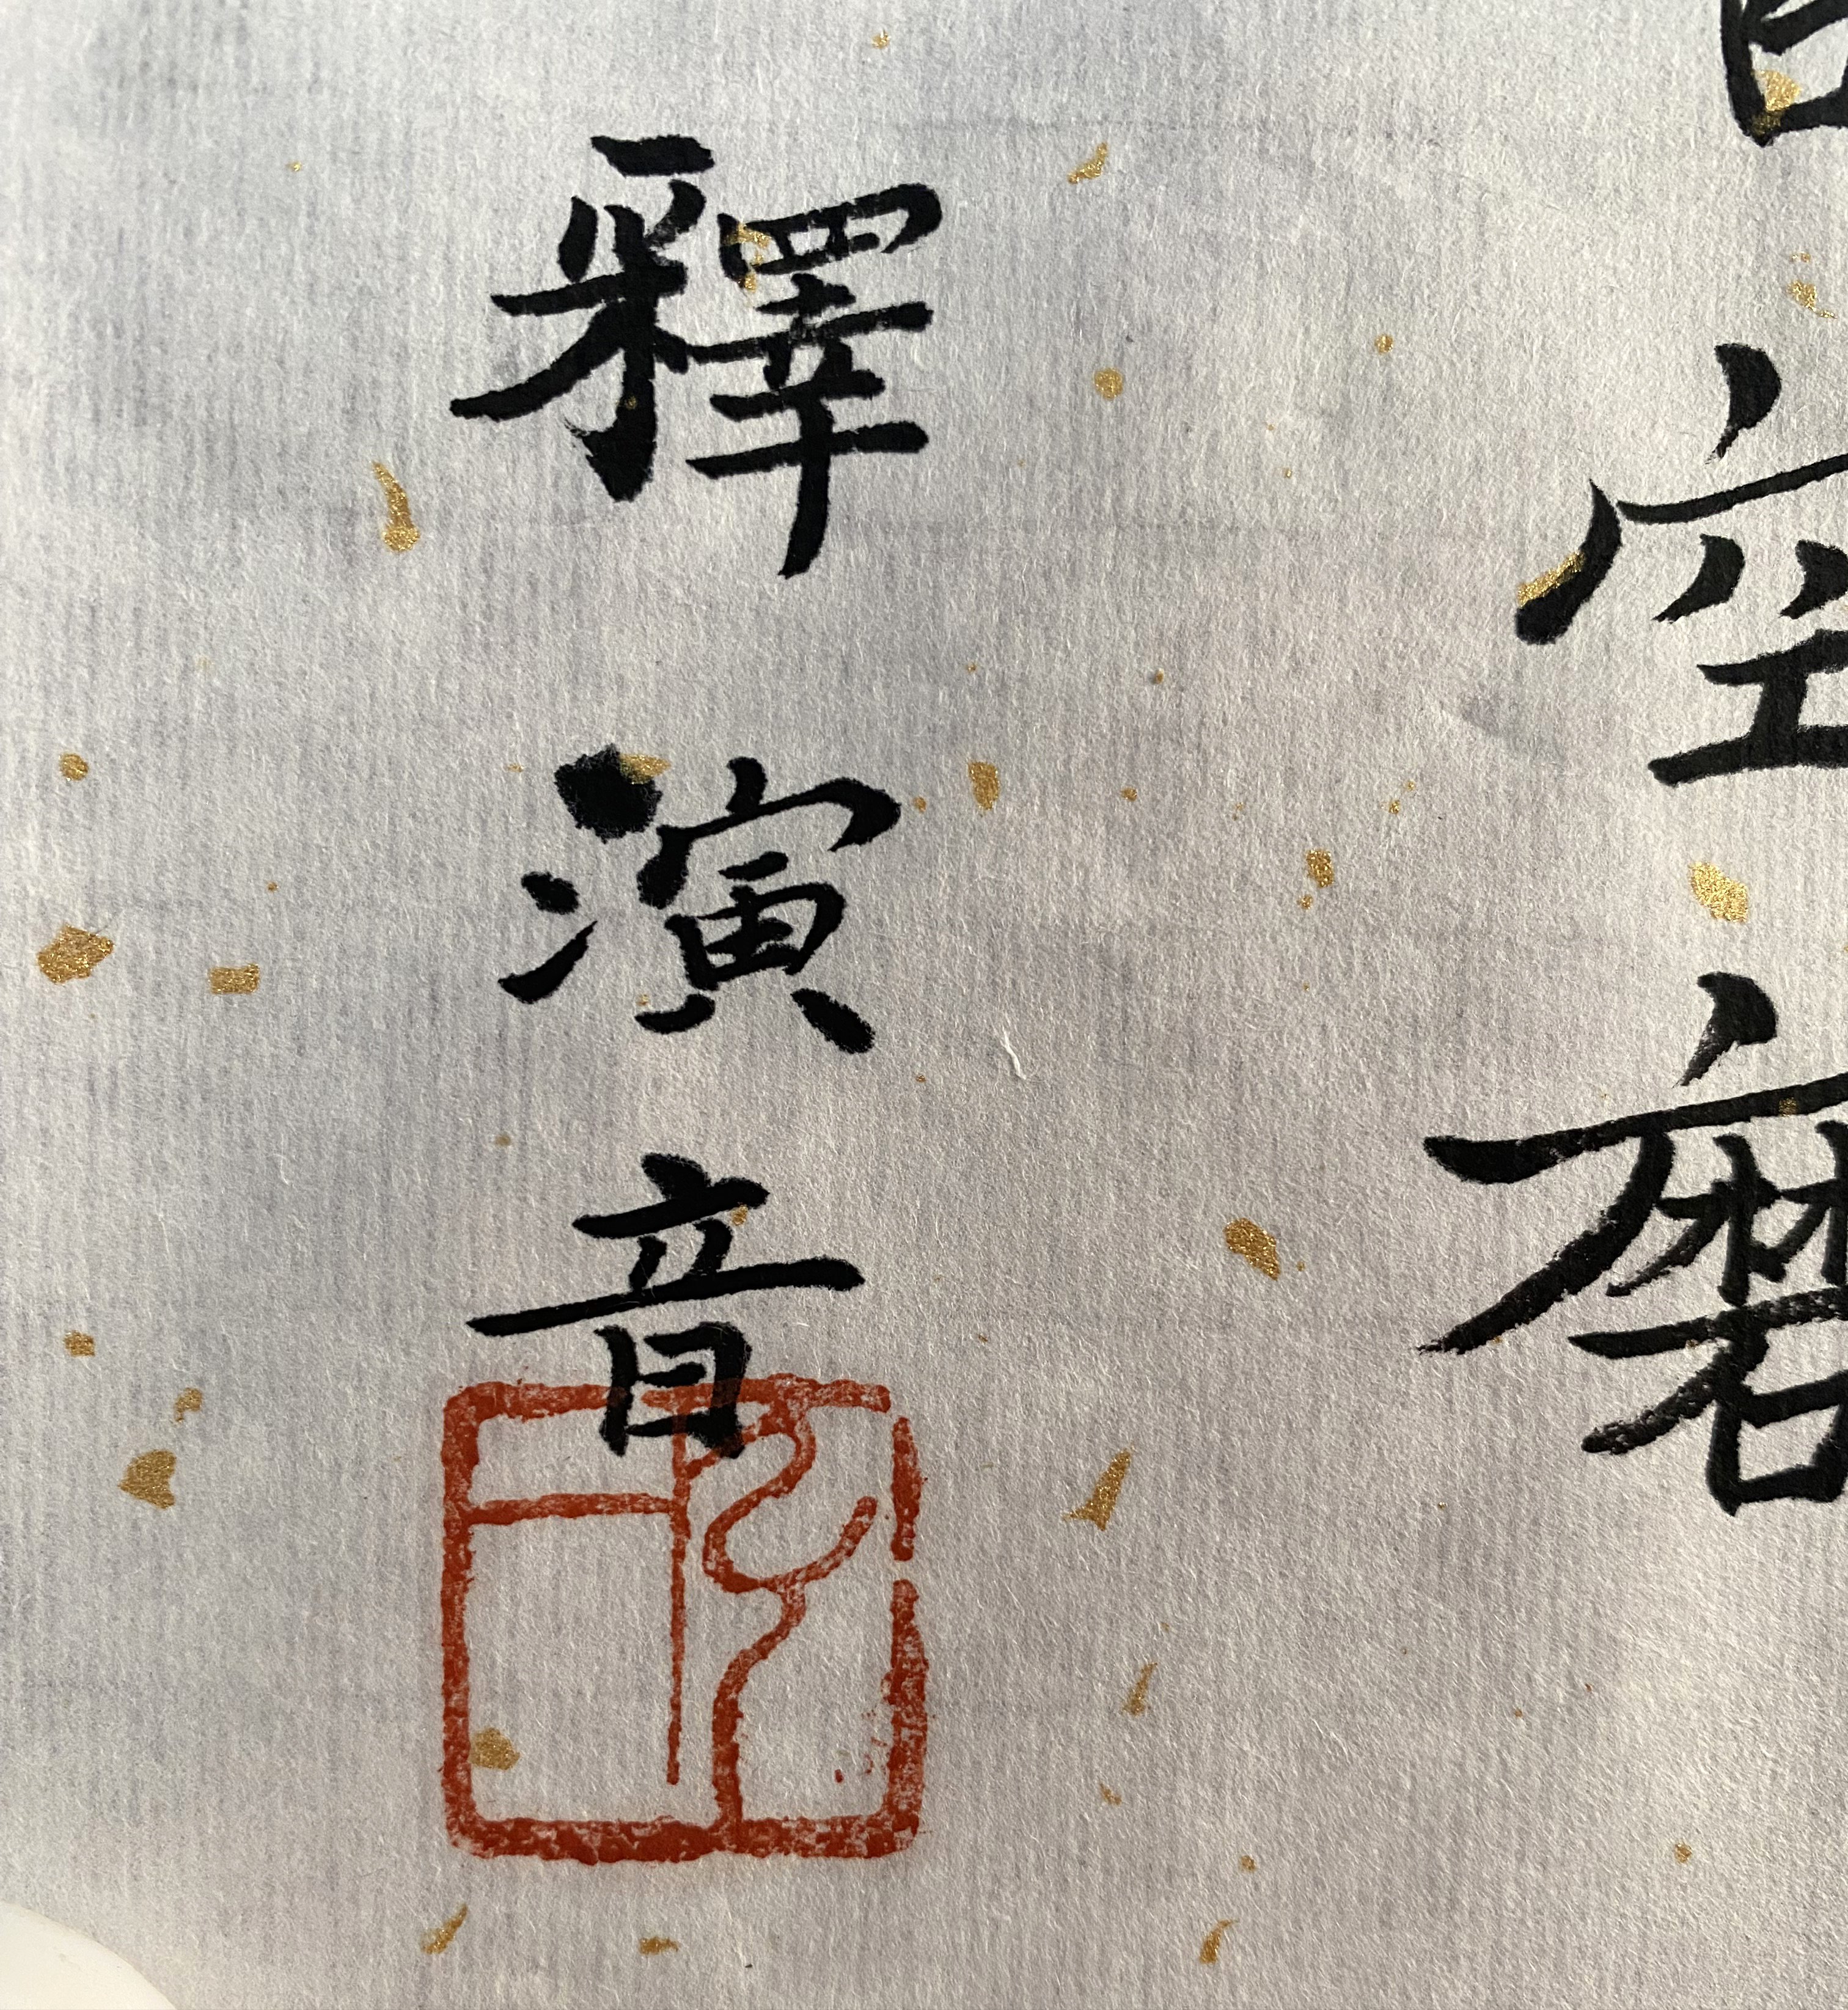 空磨
釋演音